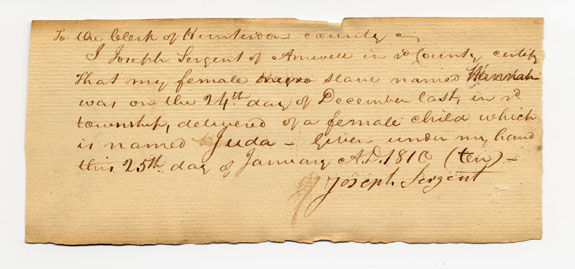 To the Clerk of Hunterdon county
I Joseph Sergent of Amwell in sd County certify
that my female negro slave named Hannah
was on the 24th day of December last, in sd
township, delivered of a female child which
is named Juda - Given under my hand
this 25th day of January A.D. 1810 (ten) -
Joseph Sergent